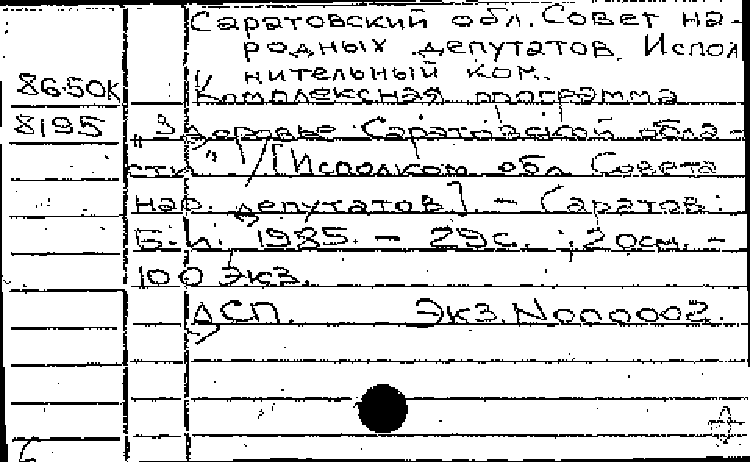 Саратовский обл. Совет на-
родных депутатов. Испол
нительный ком.
86-50к Комплексная программа
8195 „Здоровье Саратовской обла-
сти" / [Исполком обл Совета
нар. депутатов]. - Саратов:
Б.и. 1985. - 29с. ; 20см. -
100 экз.
ДСП. Экз. N000002.